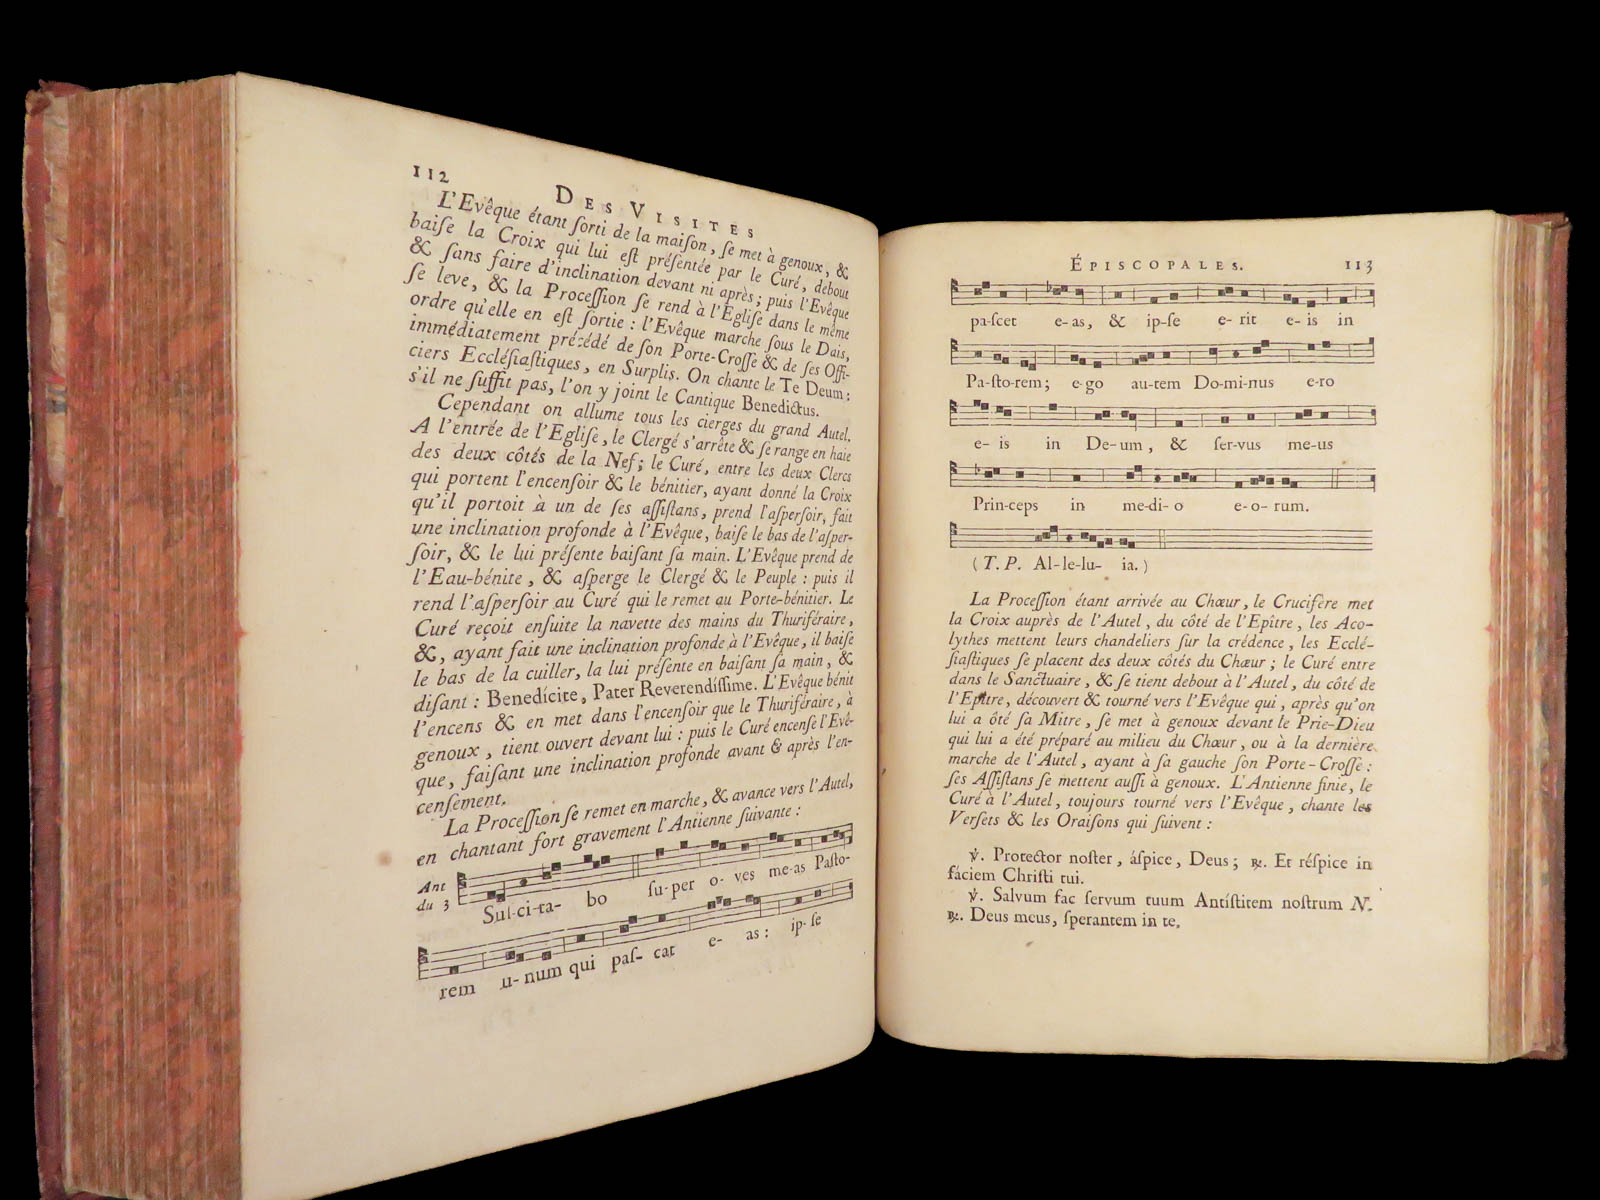 112
DES VISITES
L'Evêque étant ſorti de la maiſon, ſe met à genoux, &
baiſe la Croix qui lui eſt préſentée par le Curé, debout
& ſans faire d'inclination devant ni après; puis l'Evêque
ſe leve, & la Proceſſion ſe rend à l'Egliſe dans le même
ordre qu'elle en eſt ſortie : l'Evêque marche ſous le Dais,
immédiatement précédé de ſon Porte-Croſſe & de ſes Offi-
ciers Eccléſiaſtiques, en Surplis. On chante le Te Deum :
s'il ne ſuffit pas, l'on y joint le Cantique Benedictus.
Cependant on allume tous les cierges du grand Autel.
A l'entrée de l'Egliſe, le Clergé s'arrête & ſe range en haie
des deux côtés de la Nef; le Curé, entre les deux Clercs
qui portent l'encenſoir & le bénitier, ayant donné la Croix
qu'il portoit à un de ſes aſſiſtans, prend l'aſperſoir, fait
une inclination profonde à l'Evêque, baiſe le bas de l'aſper-
ſoir, & le lui préſente baiſant ſa main. L'Evêque prend de
l'Eau-bénite, & aſperge le Clergé & le Peuple : puis il
rend l'aſperſoir au Curé qui le remet au Porte-bénitier. Le
Curé reçoit enſuite la navette des mains du Thuriféraire,
&, ayant fait une inclination profonde à l'Evêque, il baiſe
le bas de la cuiller, la lui préſente en baiſant ſa main, &
diſant : Benedícite, Pater Reverendíſſime. L'Evêque bénit
l'encens & en met dans l'encenſoir que le Thuriféraire, à
genoux, tient ouvert devant lui : puis le Curé encenſe l'Evê-
que, faiſant une inclination profonde avant & après l'en-
cenſement.
La Proceſſion ſe remet en marche, & avance vers l'Autel,
en chantant fort gravement l'Antienne ſuivante :
Ant
du 3
Suſ-ci-ta- bo ſu-per o- ves me-as Paſto-
rem u- num qui paſ- cat e- as : ip- ſe
ÉPISCOPALES. 113
pa-ſcet e-as, & ip-ſe e- rit e- is in
Pa-ſto-rem; e-go au-tem Do-mi-nus e-ro
e- is in De-um, & ſer-vus me-us
Prin-ceps in me-di- o e-o- rum.
( T. P. Al-le-lu- ia. )
La Proceſſion étant arrivée au Chœur, le Crucifère met
la Croix auprès de l'Autel, du côté de l'Epître, les Aco-
lythes mettent leurs chandeliers ſur la crédence, les Ecclé-
ſiaſtiques ſe placent des deux côtés du Chœur; le Curé entre
dans le Sanctuaire, & ſe tient debout à l'Autel, du côté de
l'Epître, découvert & tourné vers l'Evêque qui, après qu'on
lui a ôté ſa Mitre, ſe met à genoux devant le Prie-Dieu
qui lui a été préparé au milieu du Chœur, ou à la dernière
marche de l'Autel, ayant à ſa gauche ſon Porte-Croſſe :
ſes Aſſiſtans ſe mettent auſſi à genoux. L'Antienne finie, le
Curé à l'Autel, toujours tourné vers l'Evêque, chante les
Verſets & les Oraiſons qui ſuivent :
℣. Protector noſter, áſpice, Deus; ℟. Et réſpice in
fáciem Chriſti tui.
℣. Salvum fac ſervum tuum Antíſtitem noſtrum N.
℟. Deus meus, ſperantem in te.